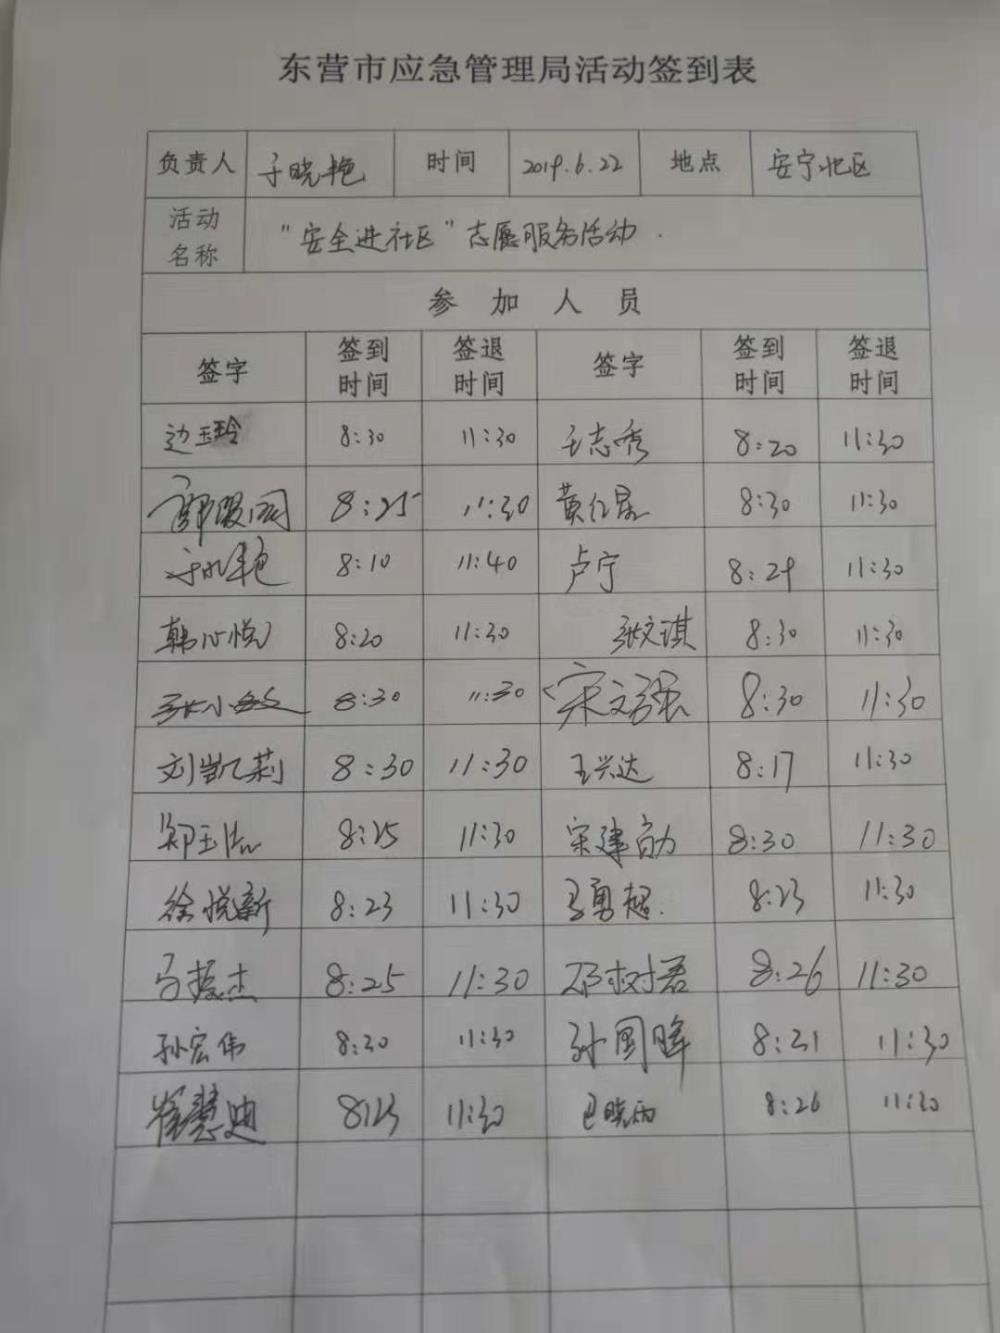 东营市应急管理局活动签到表
负责人 于晓艳 时间 2019.6.22 地点 安宁北区
活动名称 “安全进社区”志愿服务活动.
参加人员
签字 签到时间 签退时间 签字 签到时间 签退时间
边玉玲 8:30 11:30 王志秀 8:20 11:30
8:25 11:30 8:30 11:30
8:10 11:40 卢宁 8:29 11:30
韩心悦 8:20 11:30 张文琪 8:30 11:30
张小敏 8:30 11:30 宋文强 8:30 11:30
刘凯莉 8:30 11:30 王兴达 8:17 11:30
8:25 11:30 宋建勋 8:30 11:30
徐悦新 8:23 11:30 马勇超 8:23 11:30
8:25 11:30 邓树君 8:26 11:30
孙宏伟 8:20 11:30 孙国晖 8:21 11:30
崔慧迪 8:23 11:30 巴晓雨 8:26 11:30